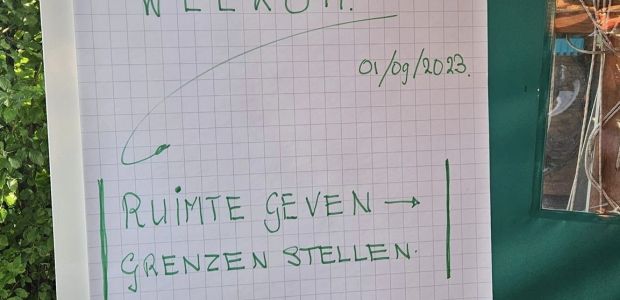 WELKOM.
01/09/2023.
RUIMTE GEVEN →
GRENZEN STELLEN.